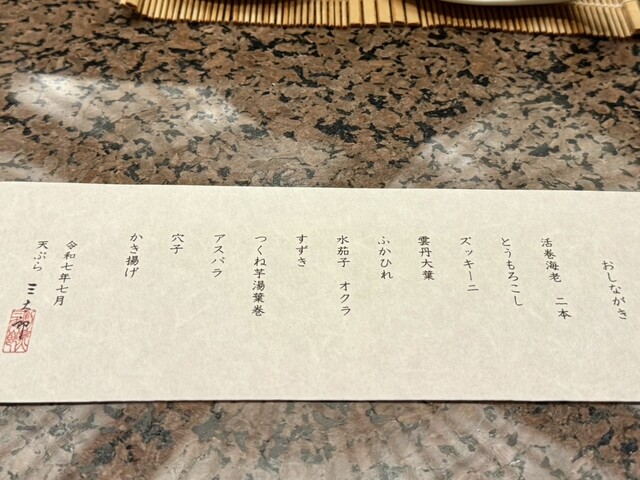 おしながき
活巻海老　二本
とうもろこし
ズッキーニ
雲丹大葉
ふかひれ
水茄子　オクラ
すずき
つくね芋湯葉巻
アスパラ
穴子
かき揚げ
令和七年七月
天ぷら　三太郎